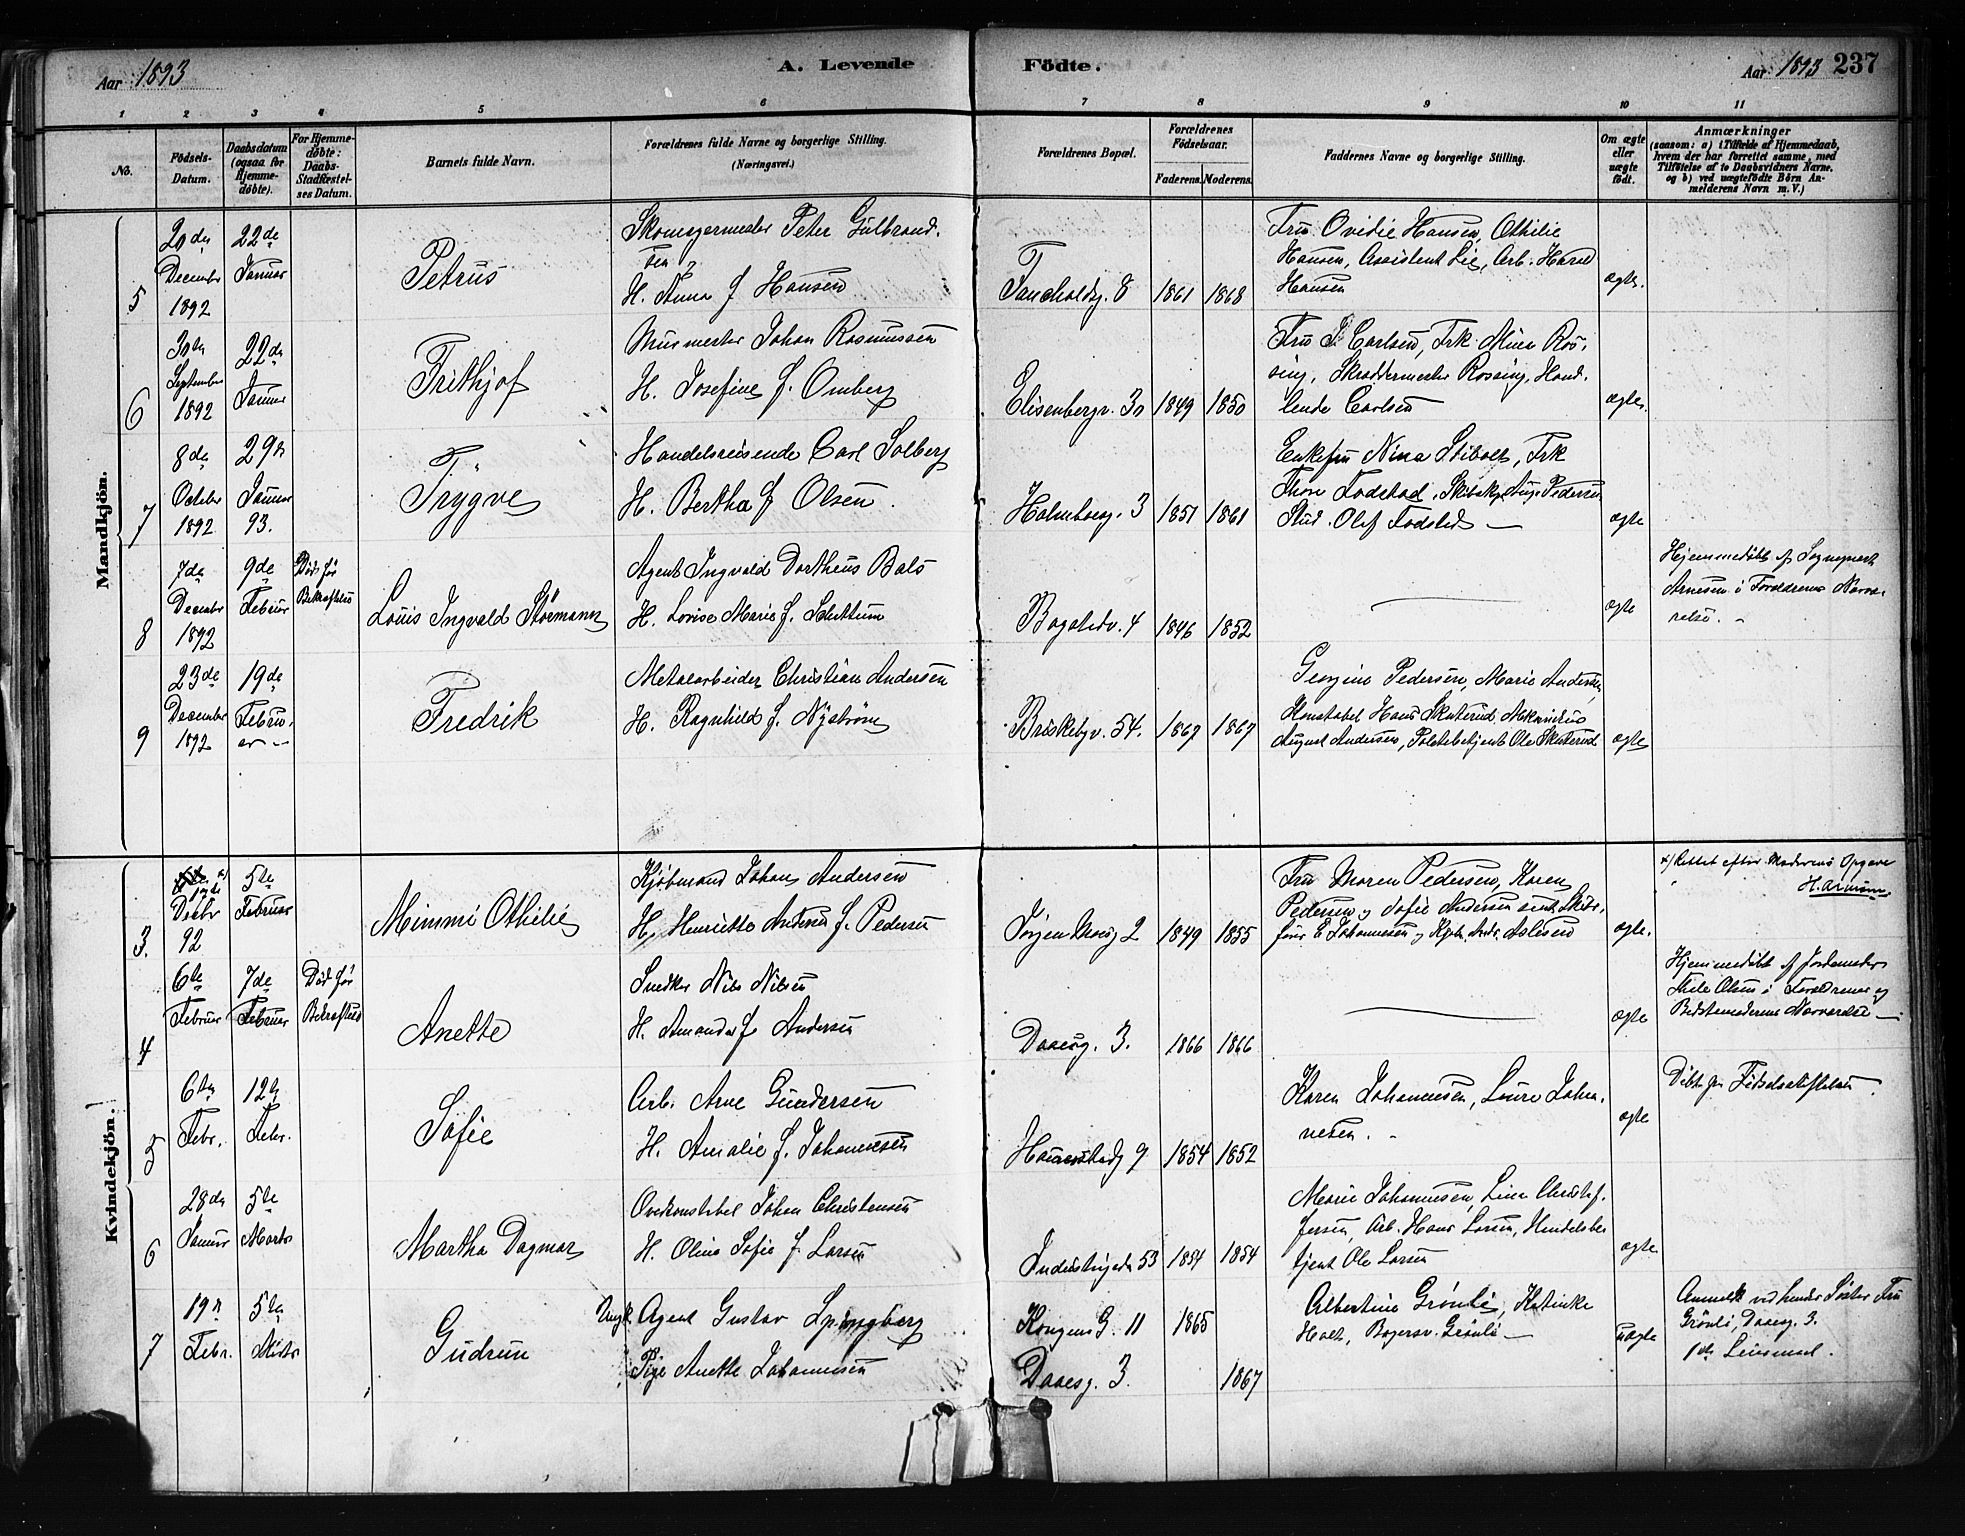 Aar 1893
A. Levende Födte.
Aar 1893 237
1 2 3 4 5 6 7 8 9 10 11
No.
Födsels-Datum.
Daabsdatum (ogsaa for Hjemme-döbte).
For Hjemme-döbte: Daabs-Stadfæstel-ses Datum.
Barnets fulde Navn.
Forældrenes fulde Navne og borgerlige Stilling. (Næringsvei.)
Forældrenes Bopæl.
Forældrenes Födselsaar.
Faderens. Moderens.
Faddernes Navne og borgerlige Stilling.
Om ægte eller uægte födt.
Anmærkninger (saasom: a) i Tilfælde af Hjemmedaab, hvem der har forrettet samme, med Tilföielse af to Daabsvidners Navne, og b) ved uægtefödte Börn An-melderens Navn m. V.)
Mandkjön.
5
20de December 1892
22de Januar
Petrus
Skomagermester Peter Gulbrand-
sen,
H. Anna f Hansen
8 1861 1868
Fru Ovidie Hansen, Othilie
Hansen, Assistent Lie, Arb. Harad
Hansen
ægte.
6
30te September 1892
22de Januar
Frithjof
Murmester Johan Rasmussen
H. Josefine f. Omberg
Elisenbergv. 30 1849 1850
Fru J. Carlsen, Frk. Mina Ros-
sing, Skræddermester Rossing, Hand-
lende Carlsen
ægte.
7
8de October 1892
29de Januar 93.
Trygve
Handelsreisende Carl Solberg
H. Bertha f Olsen.
Holmboesg. 3 1851 1861
Enkefru Nina Stibolt, Frk
Thora Fodstad, Pedersen
Stud. Olaf Fodstad —
ægte
8
7de December 1892
9de Februar
Död för Bekræftelse
Louis Ingvald Störmann
Agent Ingvald Dortheus Bals
H. Lovise Marie f. Schuttum
Bogstadv. 4 1846 1852
ægte
Hjemmedöbt af Sogneprest
Arnesen i Forældrenes Nærvæ-
relse. -
9
23de December 1892
19de Februar -
Fredrik
Metalarbeider Christian Andersen
H. Ragnhild f. Nyström
Briskebyv. 54. 1867 1867
Georgine Pedersen, Marie Andersen,
Konstabel Hans Skuterud, Mekanikus
August Andersen, Politibetjent Ole Skuterud
ægte
Kvindekjön.
3.
17de Decbr 92
5te Februar
Mimmi Othilie
Kjöbmand Johan Andersen
H. Henriette Andersen f. Pedersen
Jörgen Moesg 2 1849 1855
Fru Maren Pedersen, Karen
Pedersen og Sofie Andersen samt Skibs-
förer E Johannesen og Kjöbm. Andr. Aslesen
ægte.
x) Rettet efter Moderens Opgave
H. Arnesen
4
6te Februar
7de Februar
Död för Bekræftelse
Anette
Snedker Nils Nilsen
H. Amanda f Andersen
Daasg. 3. 1866 1866
ægte
Hjemmedöbt af Jordemoder
Thile Olsen i Forældrenes og
Bedstemoderens Nærværelse —
5
6te Febr.
12te Febr.
Sofie
Arb. Arne Gundersen
H. Amalie f. Johannesen
9 1854 1852
Karen Johannesen, Laura Johan-
nesen. -
ægte
Döbt paa Födselsstiftelsen
6
28de Januar
5te Marts
Martha Dagmar
Overkonstabel Johan Christensen
H. Oline Sofie f. Larsen
Industrigaden 53 1854 1854
Marie Johannesen, Lina Christof-
fersen, Arb. Hans Larsen, Handelsbe
tjent Ole Larsen
ægte
7
19de Febr.
5te Marts
Gudrun
Ungk. Agent Gustav Spingberg
Pige Anette Johannesen
Kongens G. 11 1865
Daasg. 3. 1867
Albertine Grönli, Katinka
Holt, Bogersv. Grönli —
uægte
Anmeldt ved hendes Söster Fru
Grönli, Daasg. 3.
1ste Leiermaal.